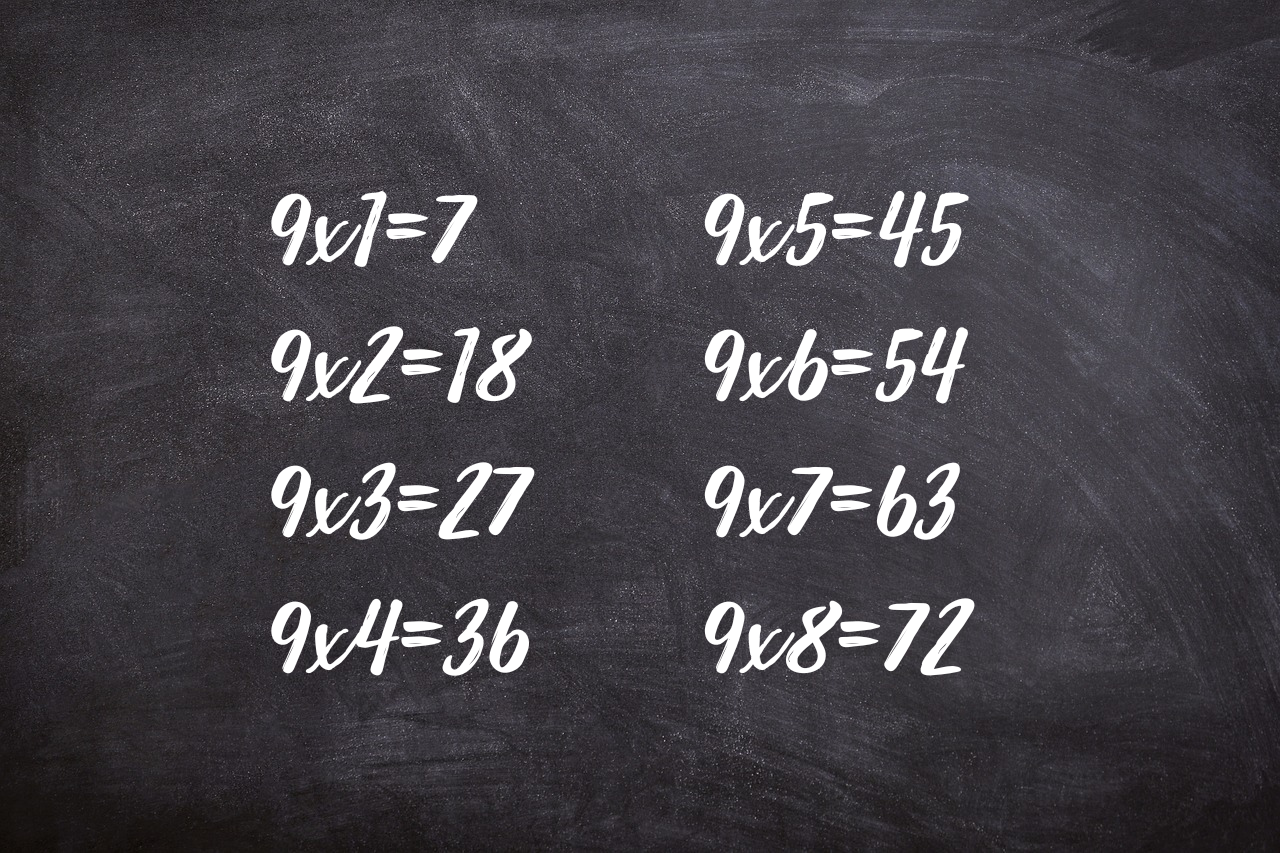 9x1=7
9x2=18
9x3=27
9x4=36
9x5=45
9x6=54
9x7=63
9x8=72